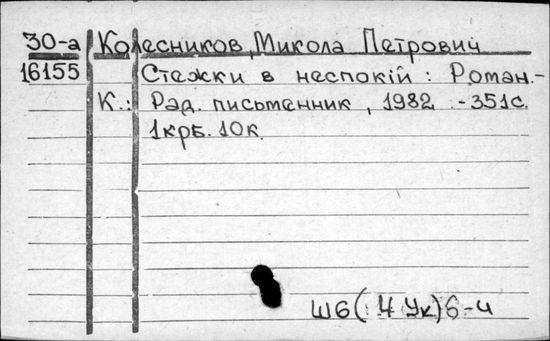 30-а Колесников, Микола Петрович
16155 Стежки в неспокій : Роман.-
К.: Рад. письменник, 1982 -351с.
1крб. 10к.
Ш6(4Ук)6-4